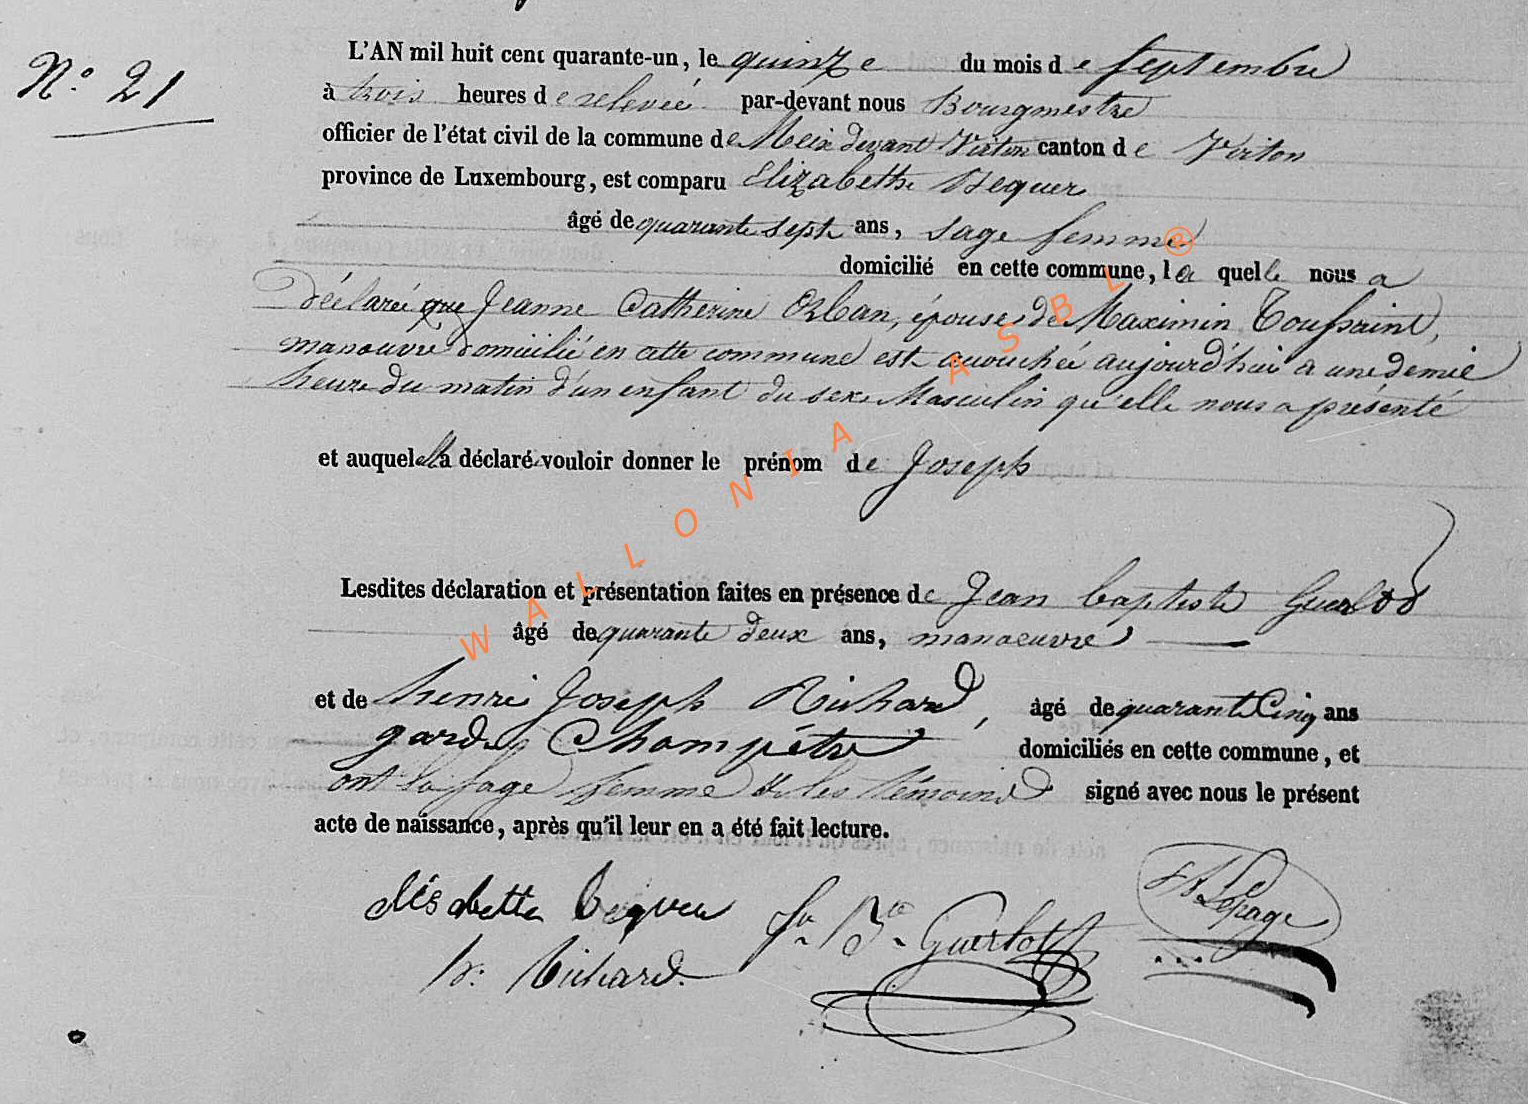 N.° 21
L'AN mil huit cent quarante-un, le quinze du mois de septembre
à trois heures de relevée par-devant nous Bourgmestre
officier de l'état civil de la commune de Meix devant Virton canton de Virton
province de Luxembourg, est comparu Elizabethe Bequer
âgé de quarante sept ans, sage femme
domicilié en cette commune, la quelle nous a
déclarée que Jeanne Catherine Orban, épouse de Maximin Toussaint,
manouvre domicilié en cette commune est accouchée aujourd'hui a une demie
heure du matin d'un enfant du sexe Masculin qu'elle nous a présenté
et auquel elle a déclaré vouloir donner le prénom de Joseph
Lesdites déclaration et présentation faites en présence de Jean baptiste Guerlot
âgé de quarante deux ans, manoeuvre
et de henri Joseph Richard, âgé de quarante Cinq ans
garde Champêtre domiciliés en cette commune, et
ont la sage femme & les témoins signé avec nous le présent
acte de naissance, après qu'il leur en a été fait lecture.
elisabette bequer J.n B.te Guerlot Lepage
h. Richard.
WALLONIA ASBL ®